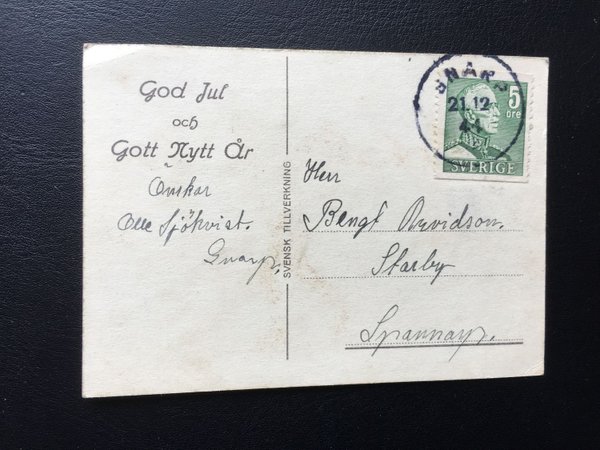 God Jul
och
Gott Nytt År
Önskar
Olle Sjökvist.
Gnarp.
SVENSK TILLVERKNING
Herr
Bengt Arvidson.
Starby
Spannarp.
21.12
5
öre
SVERIGE